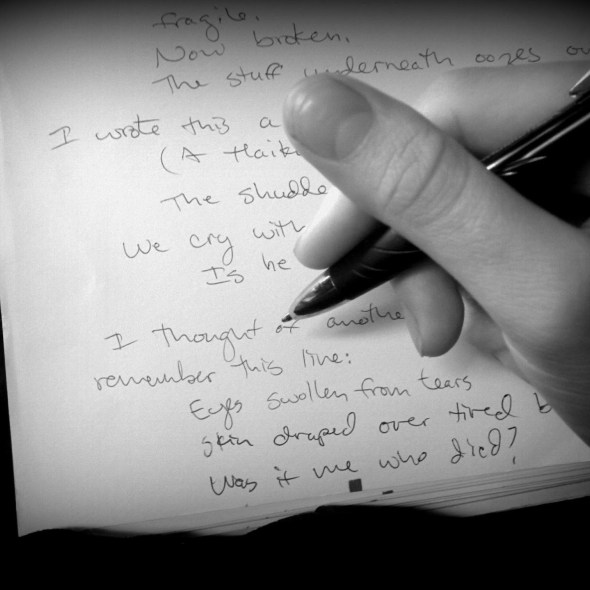 fragile.
Now broken.
The stuff underneath oozes
I wrote this a
(A Haik
The shudde
We cry with
Is he
I thought of anothe
remember this line:
Eyes swollen from tears
skin draped over tired b
Was it me who died?